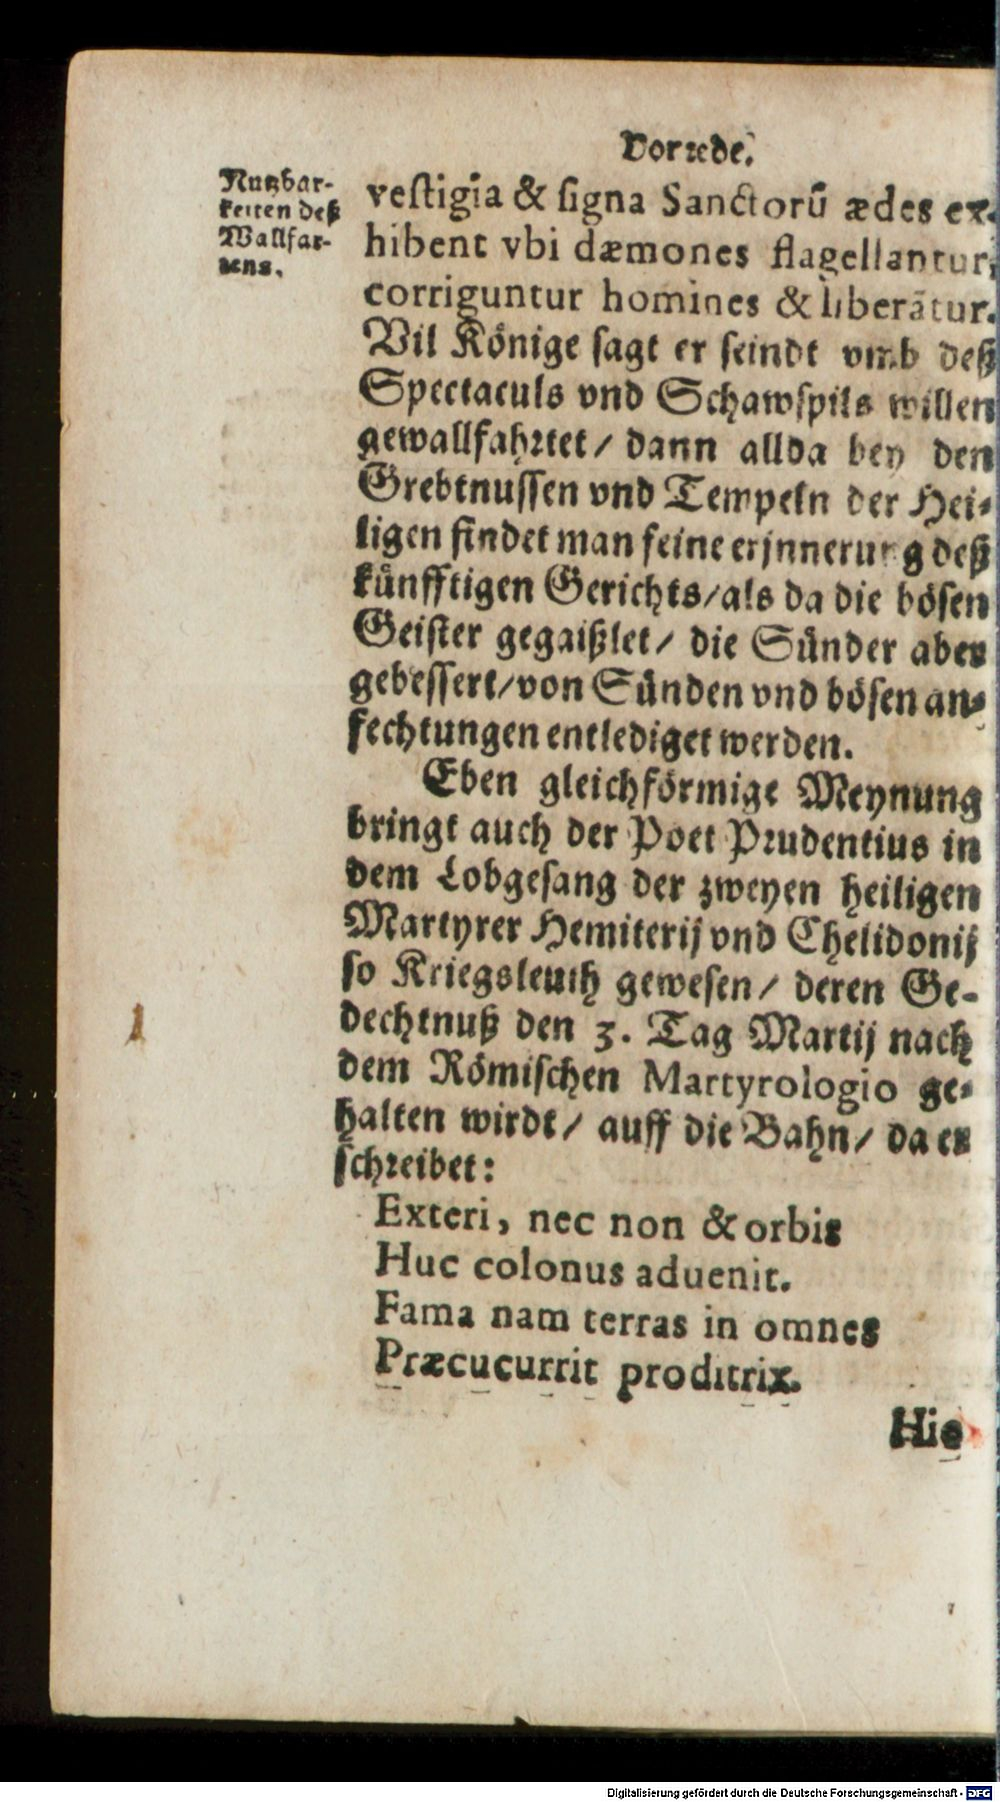 Vorrede.
Nutzbar-
keiten deß
Wallfar-
tens.
vestigia & signa Sanctorū ædes ex-
hibent vbi dæmones flagellantur,
corriguntur homines & liberātur.
Vil Könige sagt er seindt vmb deß
Spectaculs vnd Schawspils willen
gewallfahrtet / dann allda bey den
Grebtnussen vnd Tempeln der Hei-
ligen findet man feine erjnnerung deß
künfftigen Gerichts / als da die bösen
Geister gegaißlet / die Sünder aber
gebessert / von Sünden vnd bösen an-
fechtungen entlediget werden.
Eben gleichförmige Meynung
bringt auch der Poet Prudentius in
dem Lobgesang der zweyen heiligen
Martyrer Hemiterij vnd Chelidonij
so Kriegsleuth gewesen / deren Ge-
dechtnuß den 3. Tag Martij nach
dem Römischen Martyrologio ge-
halten wirdt / auff die Bahn / da er
schreibet:
Exteri, nec non & orbis
Huc colonus aduenit.
Fama nam terras in omnes
Præcucurrit proditrix.
Hic
Digitalisierung gefördert durch die Deutsche Forschungsgemeinschaft - DFG